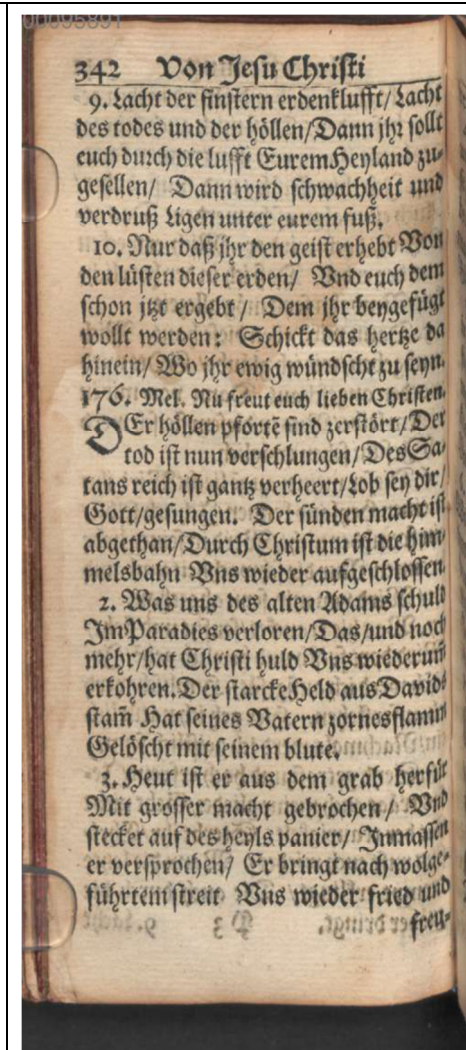 00095891
342 Von Jesu Christi
9. Lacht der finstern erdenklufft/ Lacht
des todes und der höllen/ Dann jhr sollt
euch durch die lufft Eurem Heyland zu-
gesellen/ Dann wird schwachheit und
verdruß Ligen unter eurem fuß.
10. Nur daß jhr den geist erhebt Von
den lüsten dieser erden/ Vnd euch dem
schon jtzt ergebt/ Dem jhr beygefügt
wollt werden: Schickt das hertze da
hinein/ Wo jhr ewig wündscht zu seyn.
176. Mel. Nu freut euch lieben Christen.
DEr höllen pfortē sind zerstört/ Der
tod ist nun verschlungen/ Des Sa-
tans reich ist gantz verheert/ Lob sey dir/
Gott/ gesungen. Der sünden macht ist
abgethan/ Durch Christum ist die him-
melsbahn Vns wieder aufgeschlossen
2. Was uns des alten Adams schuld
Im Paradies verloren/ Das/ und noch
mehr/ hat Christi huld Vns wiederum̃
erkohren. Der starcke Held aus Davids
stam̃ Hat seines Vatern zornesflamm
Gelöscht mit seinem blute.
3. Heut ist er aus dem grab herfür
Mit grosser macht gebrochen/ Vnd
stecket auf des heyls panier/ Inmassen
er versprochen/ Er bringt nach wolge-
führtem streit Vns wieder fried und
freu-